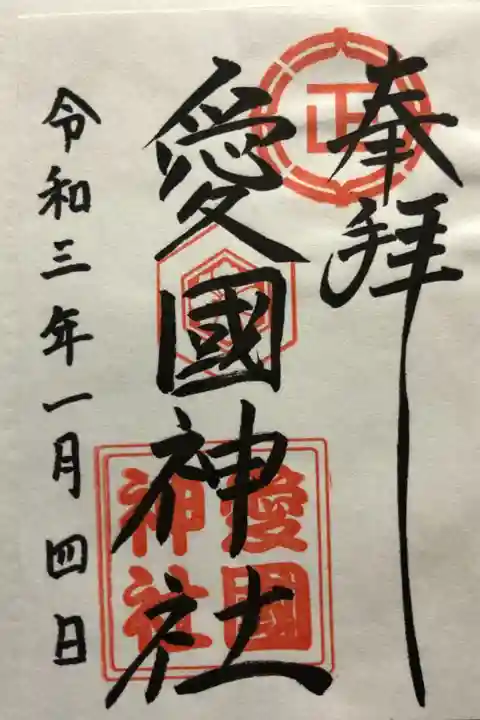 奉拝
正
愛國神社
愛國
神社
令和三年一月四日